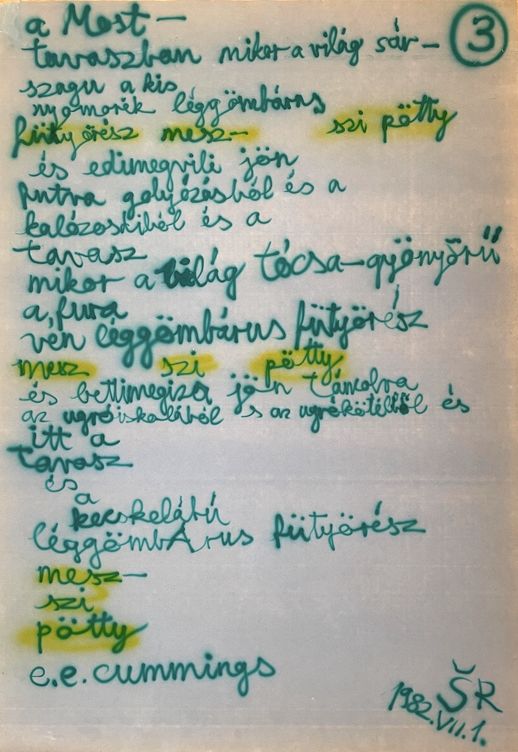 a Most –
tavaszban mikor a világ sár –
③
szagu a kis
nyomorék léggömbárus
fütyörész mesz– szi pötty
és edimegvili jön
futva golyózásból és a
kalózosdiból és a
tavasz
mikor a világ tócsa–gyönyörű
a fura
vén léggömbárus fütyörész
mesz szi pötty
és bettimegiza jön táncolva
az ugróiskolából s az ugrókötélből és
itt a
tavasz
és
a
kecskelábú
léggömbÁrus fütyörész
mesz–
szi
pötty
e.e. cummings
ŠR
1982.VII.1.